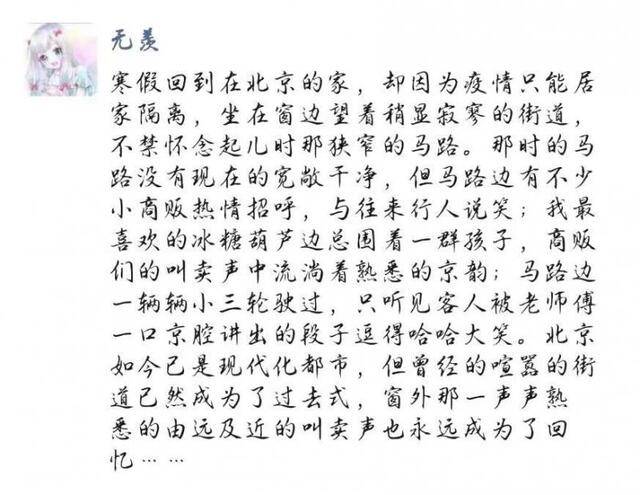 无羡
寒假回到在北京的家，却因为疫情只能居
家隔离，坐在窗边望着稍显寂寥的街道，
不禁怀念起儿时那狭窄的马路。那时的马
路没有现在的宽敞干净，但马路边有不少
小商贩热情招呼，与往来行人说笑；我最
喜欢的冰糖葫芦边总围着一群孩子，商贩
们的叫卖声中流淌着熟悉的京韵；马路边
一辆辆小三轮驶过，只听见客人被老师傅
一口京腔讲出的段子逗得哈哈大笑。北京
如今已是现代化都市，但曾经的喧嚣的街
道已然成为了过去式，窗外那一声声熟
悉的由远及近的叫卖声也永远成为了回
忆……